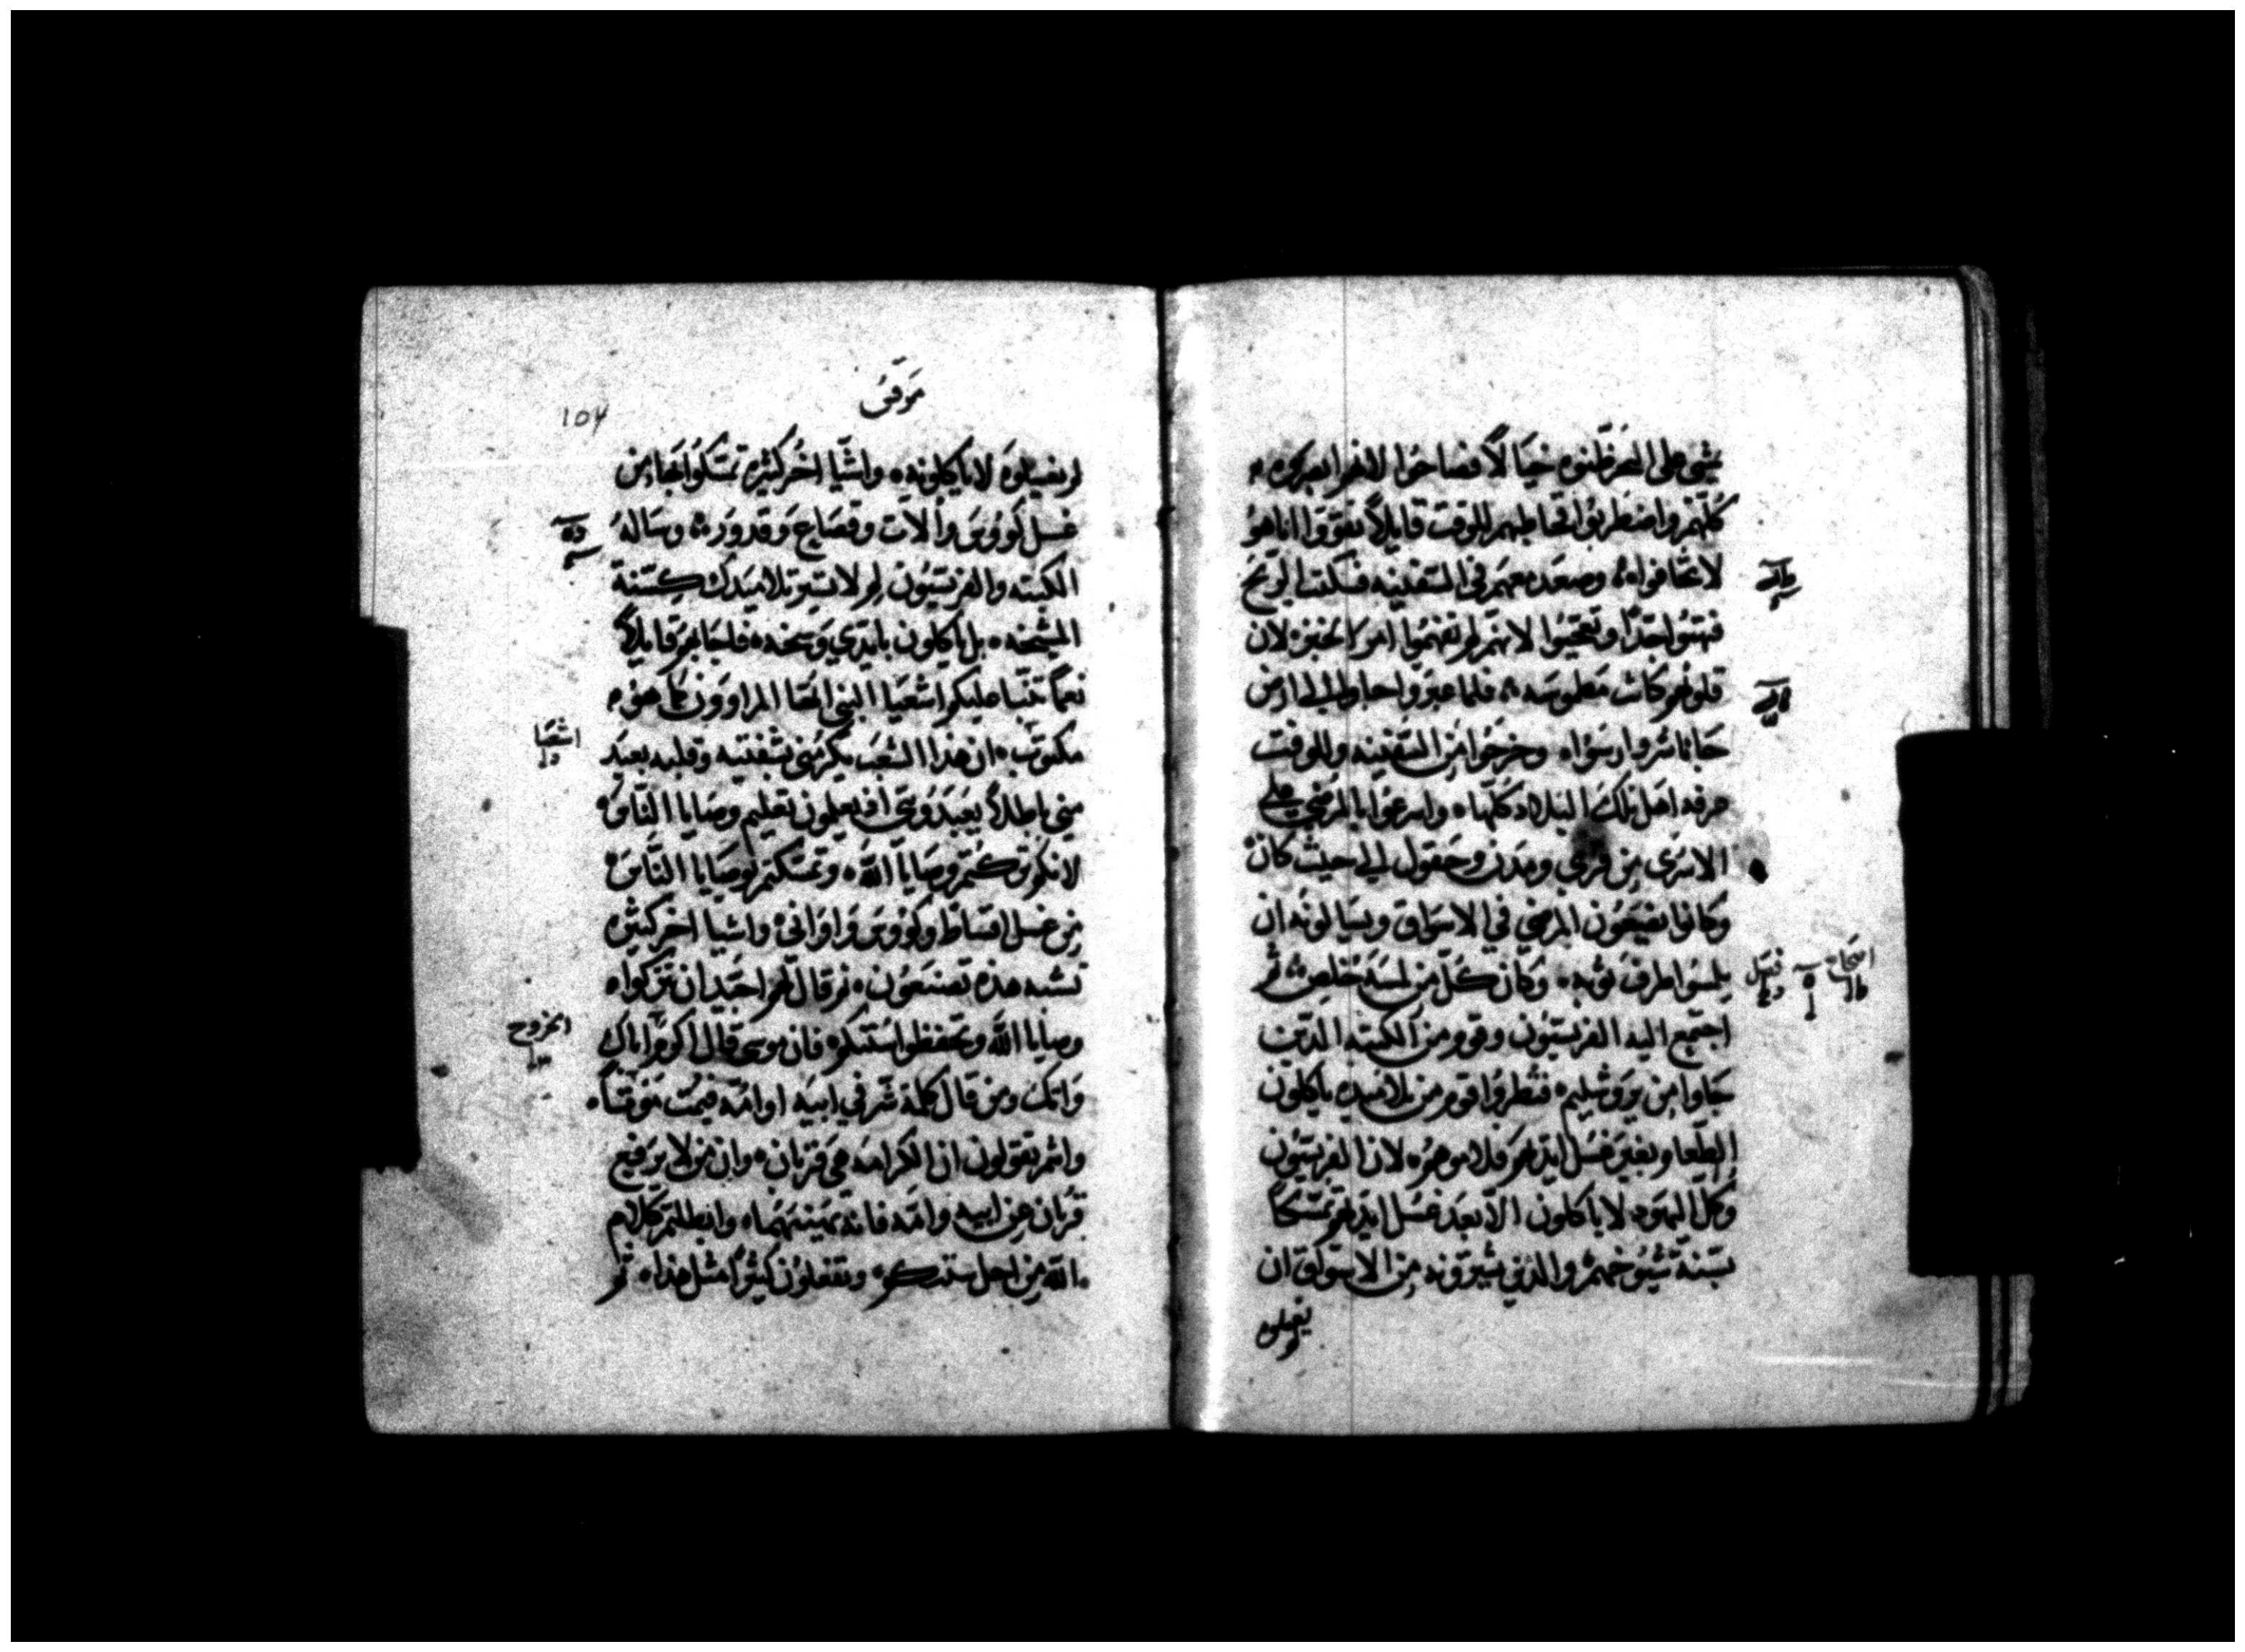 يمشي على البحر ظنوه خيالاً فصاحوا لانهم ابصروه
كلهم واضطربوا فخاطبهم للوقت قايلاً تقووا انا هو
لا تخافوا وصعد معهم في السفينه فسكنت الريح
فبهتوا جدًا وتعجبوا لانهم لم تفهموا امر الخبز لان
قلوبهم كانت مطموسه فلما عبروا جاوا الى ارض
جاناشر وارسوا وخرجوا من السفينه وللوقت
عرفه اهل تلك البلاد كلها واسرعوا بالمرضي على
الاسرى من قري ومدن وحقول الي حيث كان
وكانوا يضعون المرضي في الاسواق ويسالونه ان
يلمسوا طرف ثوبه وكان كل من لمسه خلص ثم
اجتمع اليه الفريسيون وقوم من الكتبه الذين
جاوا من يروشليم فنظروا قوم من تلاميده ياكلون
الطعام بغير غسل ايديهم فلاموهم لان الفريسيون
وكل اليهود لا ياكلون الا بعد غسل ايديهم تمسكاً
بسنة شيوخهم والذي يشترونه من الاسواق ان
لم يغسلوه
اصحاح
فصل
مرقس
104
لم يغسلوه لا ياكلونه واشيا اخر كثيره تمسكوا بها من
غسل كووس والات وقصاع وقدور وساله
الكتبه والفريسيون لم لا تسير تلاميدك كسنة
المشيخه بل ياكلون بايدي وسخه فاجابهم قايلاً
نعما تنبا عليكم اشعيا النبي ايها المراوون كما هو
مكتوب ان هذا الشعب يكرمني بشفتيه وقلبه بعيد
مني باطلاً يعبدوني اذ يعلمون تعليم وصايا الناس
لانكم تركتم وصايا الله وتمسكتم بوصايا الناس
من غسل اقساط وكووس واواني واشيا اخر كثيره
تشبه هذه تصنعون ثم قال لهم اجيد ان تتركوا
وصايا الله وتحفظوا سنتكم فان موسى قال اكرم اباك
وامك ومن قال كلمة شر في ابيه او امه فيمت موتاً
وانتم تقولون ان الكرامه هي قربان وان من لا يرفع
قربان عن ابيه وامه فانه يهينهما وابطلتم كلام
الله من اجل سنتكم وتفعلون كثيرًا مثل هذا ثم
اشعيا
الخروج